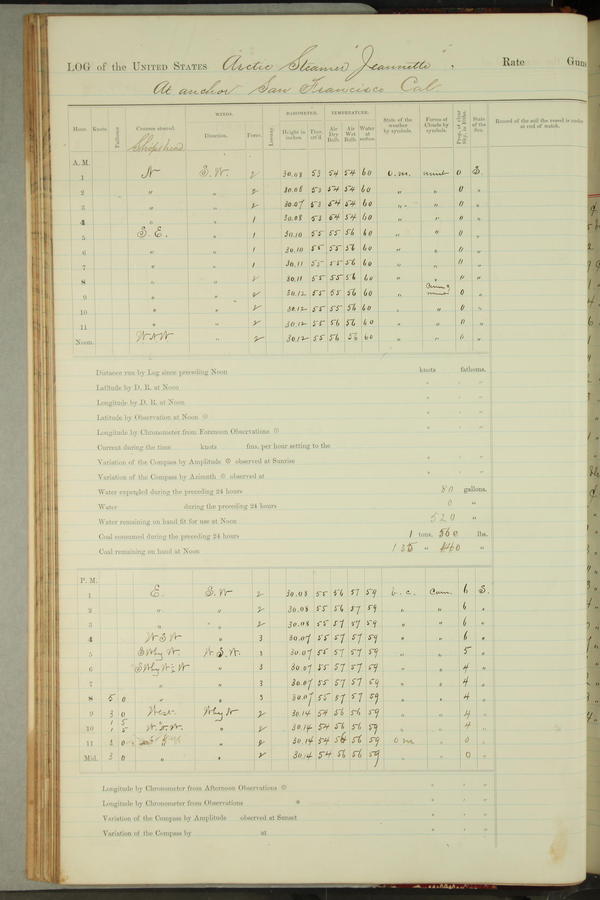 LOG of the UNITED STATES Arctic Steamer "Jeannette", Rate Guns
At anchor San Francisco Cal
Hour. Knots. Fathoms. Courses steered. WINDS. Direction. Force. Leeway. BAROMETER. Height in inches. Ther. att'd. TEMPERATURE. Air Dry Bulb. Air Wet Bulb. Water at surface. State of the weather by symbols. Forms of Clouds by symbols. Prop. of clear Sky, in 10ths. State of the Sea. Record of the sail the vessel is under at end of watch.
Ships head
A. M.
1 N S. W. 2 30.08 53 54 54 60 o.m. 0 S.
2 " " 2 30.08 53 54 54 60 " " 0 "
3 " " 2 30.07 53 54 54 60 " " 0 "
4 " " 1 30.08 53 54 54 60 " " 0 "
5 S. E. " 1 30.10 55 55 56 60 " " 0 "
6 " " 1 30.10 55 55 56 60 " " 0 "
7 " " 1 30.11 55 55 56 60 " " 0 "
8 " " 2 30.11 55 55 56 60 " " 0 "
9 " " 2 30.12 55 55 56 60 " 0 "
10 " " 2 30.12 55 55 56 60 " " 0 "
11 " " 2 30.12 55 56 56 60 " " 0 "
Noon. " 2 30.12 55 56 56 60 " " 0 "
Distance run by Log since preceding Noon knots fathoms.
Latitude by D. R. at Noon ° ' "
Longitude by D. R. at Noon ° ' "
Latitude by Observation at Noon ° ' "
Longitude by Chronometer from Forenoon Observations
Current during the time knots fms. per hour setting to the
Variation of the Compass by Amplitude observed at Sunrise
Variation of the Compass by Azimuth observed at
Water expended during the preceding 24 hours 80 gallons.
Water during the preceding 24 hours 0 "
Water remaining on hand fit for use at Noon 520 "
Coal consumed during the preceding 24 hours 1 tons, 560 lbs.
Coal remaining on hand at Noon 135 "
P. M.
1 E. S. W 2 30.08 55 56 57 59 b. c. Cum. 6 S.
2 " " 2 30.08 55 56 57 59 " " 6 "
3 " " 2 30.08 55 57 57 59 " " 6 "
4 W S W " 3 30.07 55 57 57 59 " " 6 "
5 SW by W. W. S. W. 3 30.07 55 57 57 59 " " 5 "
6 " 3 30.07 55 57 57 59 " " 4 "
7 " " 3 30.07 55 57 57 59 " " 4 "
8 5 0 " " 3 30.07 55 57 57 59 " " 4 "
9 3 0 West W by W 2 30.14 54 56 56 59 " " 4 "
10 1 5 W. S. W. " 2 30.14 54 56 56 59 " " 4 "
11 " " 2 30.14 54 56 56 59 o m " 0 "
Mid. 3 0 " " 2 30.14 54 56 56 59 " " 0 "
Longitude by Chronometer from Afternoon Observations
Longitude by Chronometer from Observations
Variation of the Compass by Amplitude observed at Sunset
Variation of the Compass by at